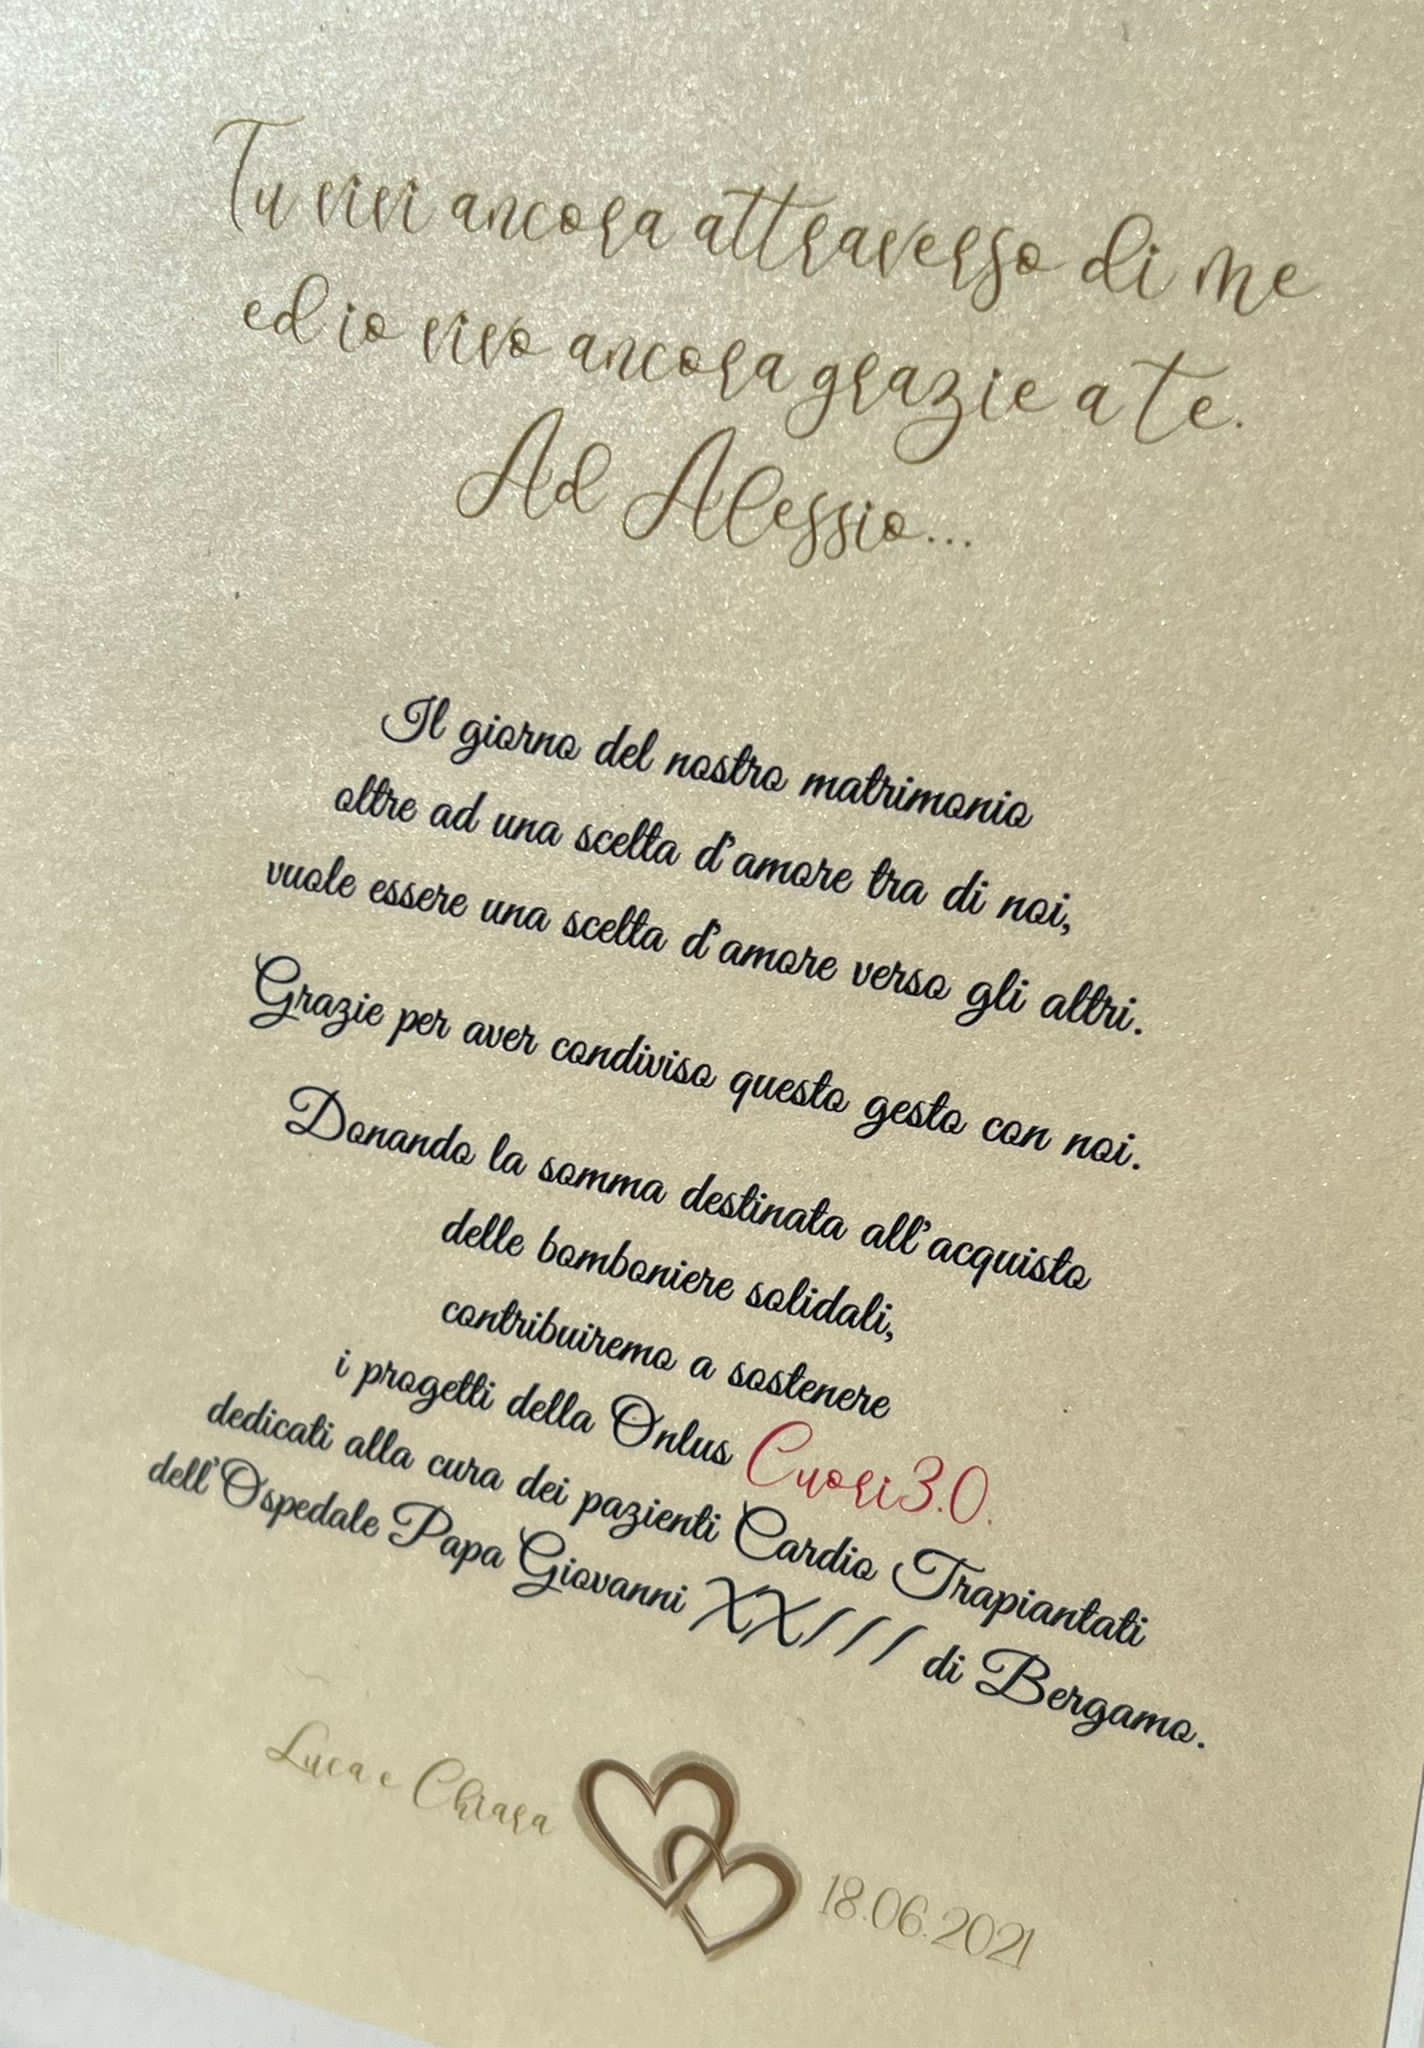 Tu vivi ancora attraverso di me
ed io vivo ancora grazie a te.
Ad Alessio...
Il giorno del nostro matrimonio
oltre ad una scelta d'amore tra di noi,
vuole essere una scelta d'amore verso gli altri.
Grazie per aver condiviso questo gesto con noi.
Donando la somma destinata all'acquisto
delle bomboniere solidali,
contribuiremo a sostenere
i progetti della Onlus Cuori3.0.
dedicati alla cura dei pazienti Cardio Trapiantati
dell'Ospedale Papa Giovanni XXIII di Bergamo.
Luca e Chiara 18.06.2021